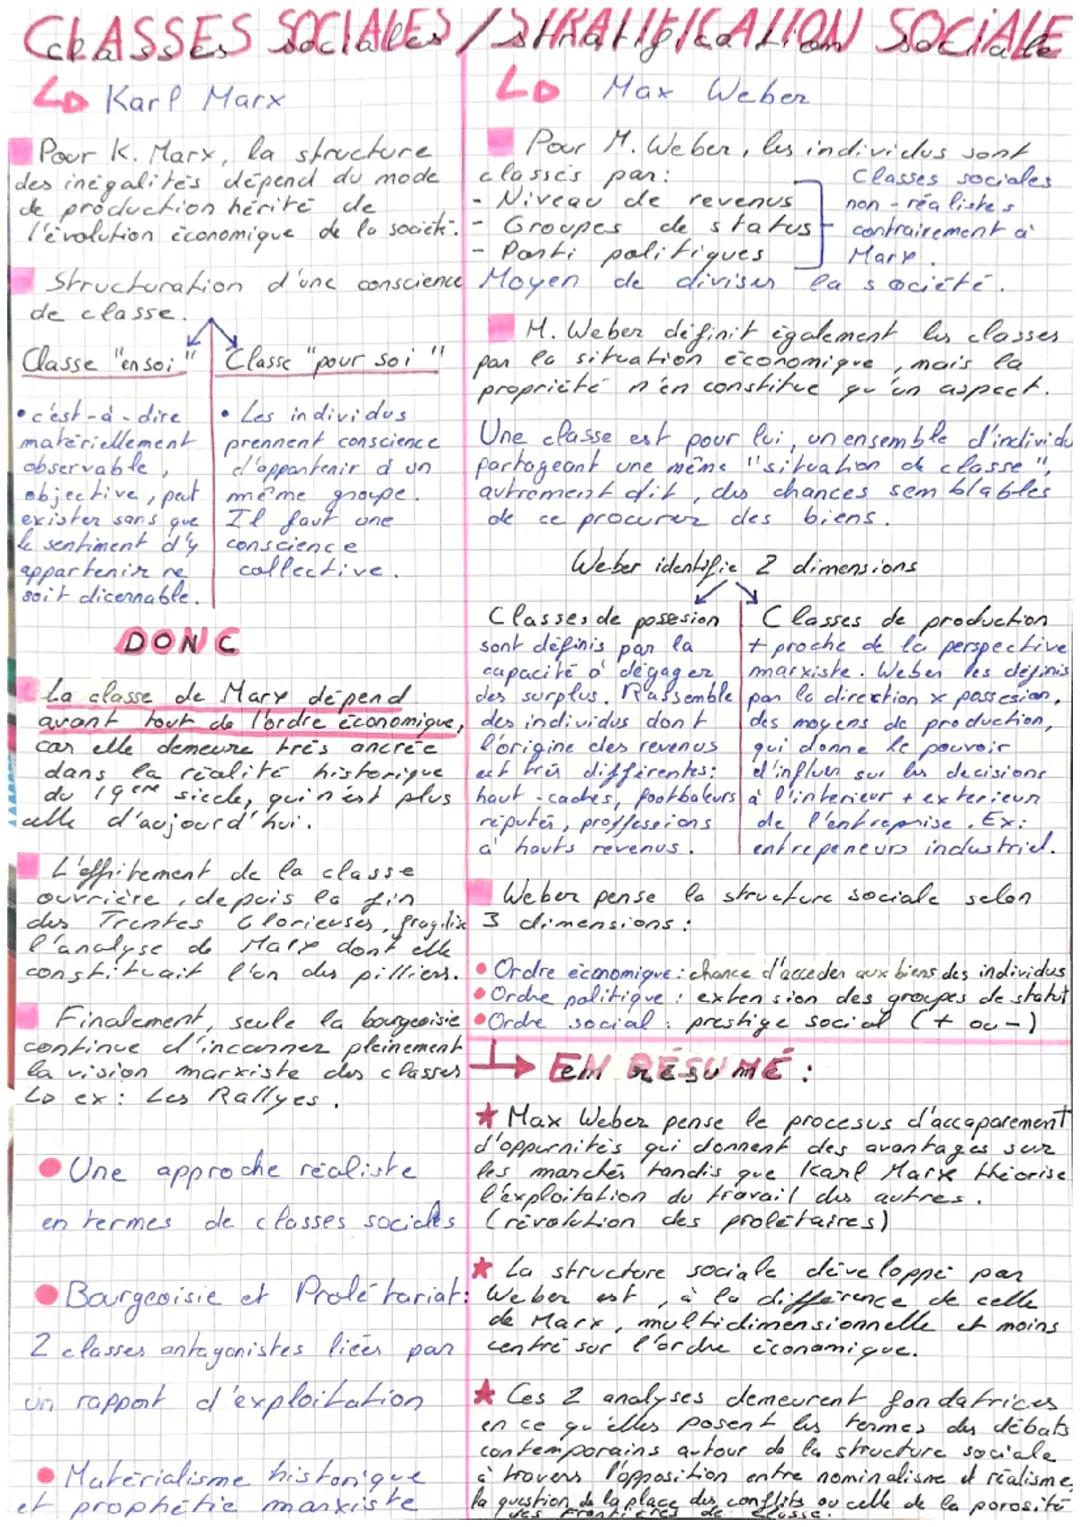 CLASSES SOCIALES / STRATIFICATION SOCIALE
classes sociales / stratification sociale
↳ Karl Marx
Pour K. Marx, la structure
des inégalités dépend du mode
de production hérité de
l'évolution économique de la société.
Structuration d'une conscience
de classe.
Classe "en soi"
• c'est-à-dire
matériellement
observable,
objective, peut
exister sans que
le sentiment d'y
appartenir ne
soit dicernable.
Classe "pour soi"
• Les individus
prennent conscience
d'appartenir à un
même groupe.
Il faut une
conscience
collective.
DONC
La classe de Marx dépend
avant tout de l'ordre économique,
car elle demeure très ancrée
dans la réalité historique
du 19ème siècle, qui n'est plus
celle d'aujourd'hui.
L'effritement de la classe
ouvrière, depuis la fin
des Trentes Glorieuses, fragilise
l'analyse de Marx dont elle
constituait l'un des pilliers.
Finalement, seule la bourgeoisie
continue d'incarner pleinement
la vision marxiste des classes
↳ ex : Les Rallyes.
• Une approche réaliste
en termes de classes sociales
• Bourgeoisie et Prolétariat :
2 classes antagonistes liées par
un rapport d'exploitation
• Matérialisme historique
et prophétie marxiste
↳ Max Weber
Pour M. Weber, les individus sont
classés par :
- Niveau de revenus
- Groupes de status
- Parti politiques
Classes sociales
non-réalistes
contrairement à
Marx.
Moyen de diviser la société.
M. Weber définit également les classes
par la situation économique, mais la
propriété n'en constitue qu'un aspect.
Une classe est pour lui, un ensemble d'individu
partageant une même "situation de classe",
autrement dit, des chances semblables
de ce procurer des biens.
Weber identifie 2 dimensions
Classes de posesion
sont définis par la
capacité à dégager
des surplus. Rassemble
des individus dont
l'origine des revenus
est très différentes :
haut-cadres, footballeurs
réputés, proffessions
à hauts revenus.
Classes de production
+ proche de la perspective
marxiste. Weber les définis
par la direction x possesion,
des moyens de production,
qui donne le pouvoir
d'influer sur les decisions
à l'interieur + exterieur
de l'entreprise. Ex :
entrepeneurs industriel.
Weber pense la structure sociale selon
3 dimensions :
• Ordre économique : chance d'acceder aux biens des individus
• Ordre politique : extension des groupes de statut
• Ordre social : prestige social (+ ou -)
↳ EN RÉSUMÉ :
★ Max Weber pense le procesus d'accaparement
d'oppurnités qui donnent des avantages sur
les marchés tandis que Karl Marx théorise
l'exploitation du travail des autres.
(révolution des prolétaires)
★ La structure sociale développé par
Weber est, à la différence de celle
de Marx, multidimensionnelle et moins
centré sur l'ordre économique.
★ Ces 2 analyses demeurent fondatrices
en ce qu'elles posent les termes des débats
contemporains autour de la structure sociale
à travers l'opposition entre nominalisme et réalisme,
la question de la place des conflits ou celle de la porosité
des frontières de classe.